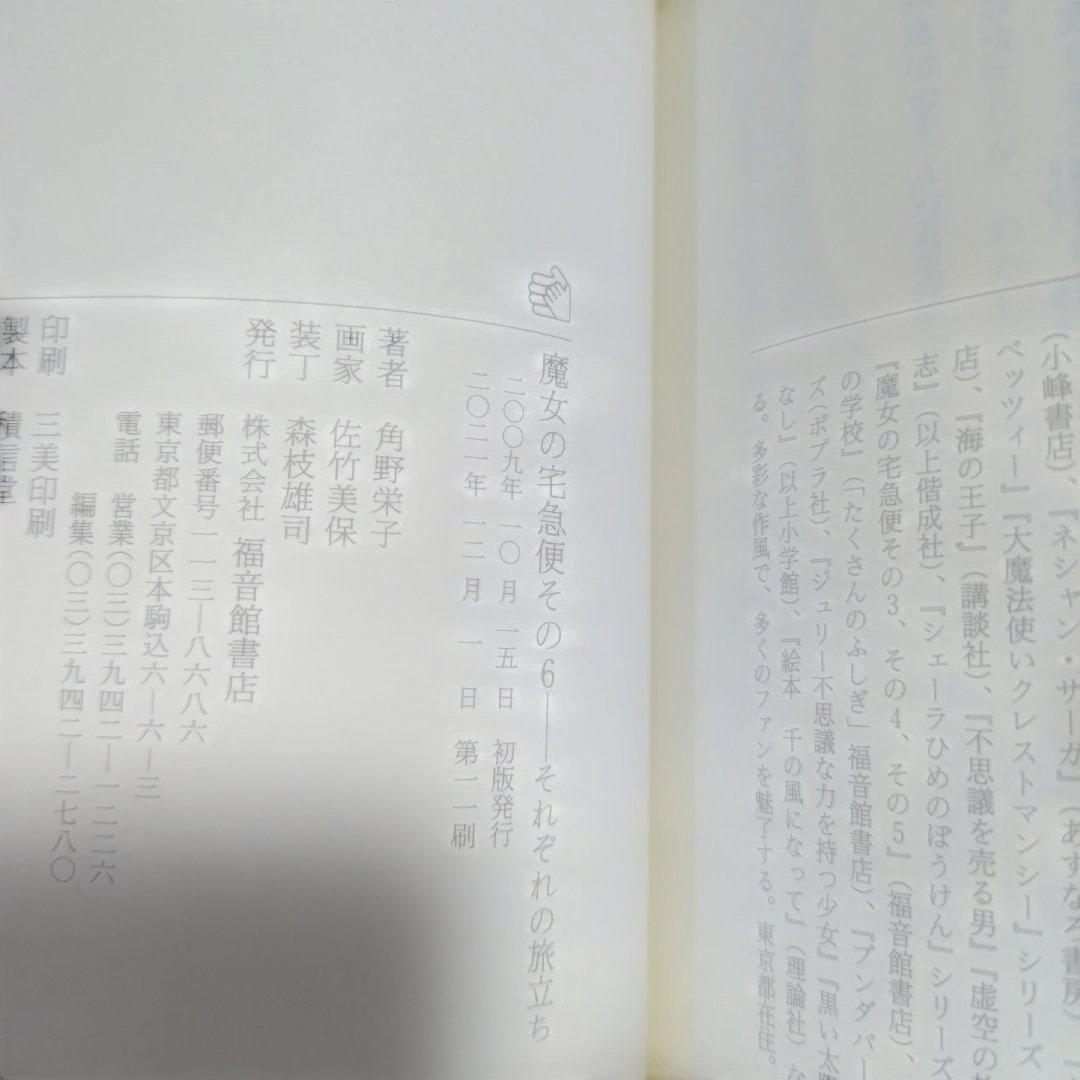 (小峰書店)、『ネシャン・サーガ』(あすなろ書房)
ベッツィー』『大魔法使いクレストマンシー』シリーズ
店)、『海の王子』(講談社)、『不思議を売る男』『虚空の
志』(以上偕成社)、『シェーラひめのぼうけん』シリーズ
『魔女の宅急便その3、その4、その5』(福音館書店)、
の学校』(「たくさんのふしぎ」福音館書店)、『ブンダバー
ズ(ポプラ社)、『ジュリー不思議な力を持つ少女』『黒い太
なし』(以上小学館)、『絵本 千の風になって』(理論社)な
る。多彩な作風で、多くのファンを魅了する。東京都在住。
魔女の宅急便その6——それぞれの旅立ち
二〇〇九年 一〇月 一五日 初版発行
二〇二一年 一二月 一日 第一一刷
著者 角野栄子
画家 佐竹美保
装丁 森枝雄司
発行 株式会社 福音館書店
郵便番号一一三—八六八六
東京都文京区本駒込六—六—三
電話 営業(〇三)三九四二—一二二六
編集(〇三)三九四二—二七八〇
印刷 三美印刷
製本 積信堂